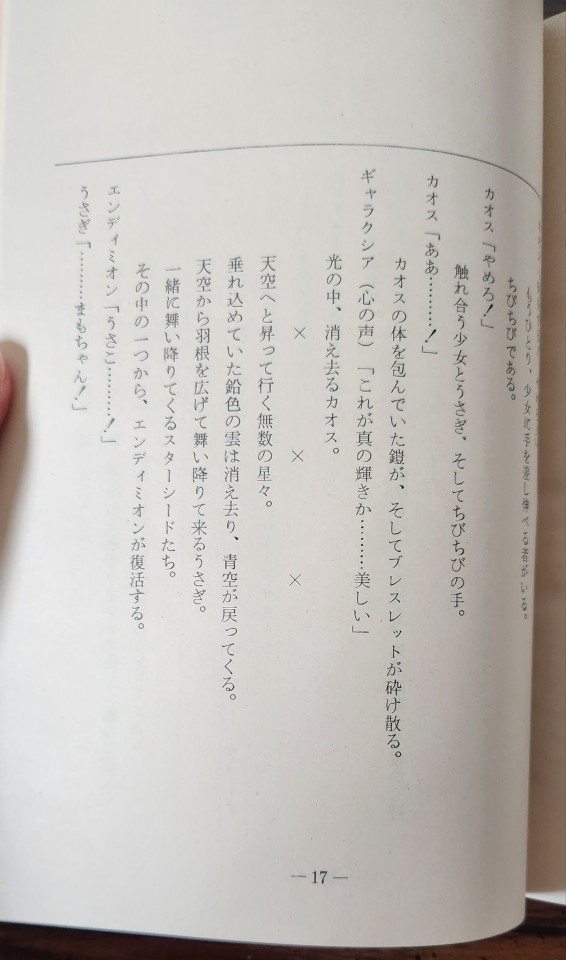 もうひとり、少女に手を差し伸べる者がいる。
ちびちびである。
カオス「やめろ！」
触れ合う少女とうさぎ、そしてちびちびの手。
カオス「ああ………！」
カオスの体を包んでいた鎧が、そしてブレスレットが砕け散る。
ギャラクシア（心の声）「これが真の輝きか………美しい」
光の中、消え去るカオス。
× × ×
天空へと昇って行く無数の星々。
垂れ込めていた鉛色の雲は消え去り、青空が戻ってくる。
天空から羽根を広げて舞い降りて来るうさぎ。
一緒に舞い降りてくるスターシードたち。
その中の一つから、エンディミオンが復活する。
エンディミオン「うさこ………！」
うさぎ「………まもちゃん！」
— 17 —